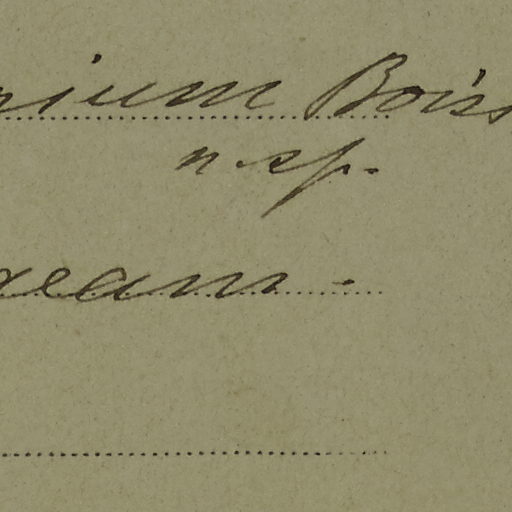 nium Boiss
n. sp.
aeam -